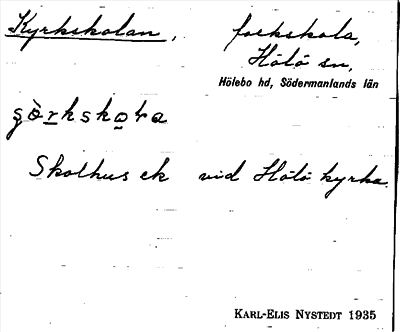 Kyrkskolan, folkskola,
Hölö sn,
Hölebo hd, Södermanlands län
Skolhus vid Hölö kyrka.
KARL-ELIS NYSTEDT 1935